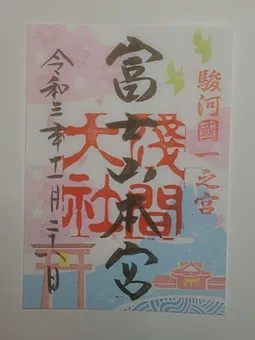 駿河國一之宮
富士山本宮
淺間大社
令和三年十一月二十一日